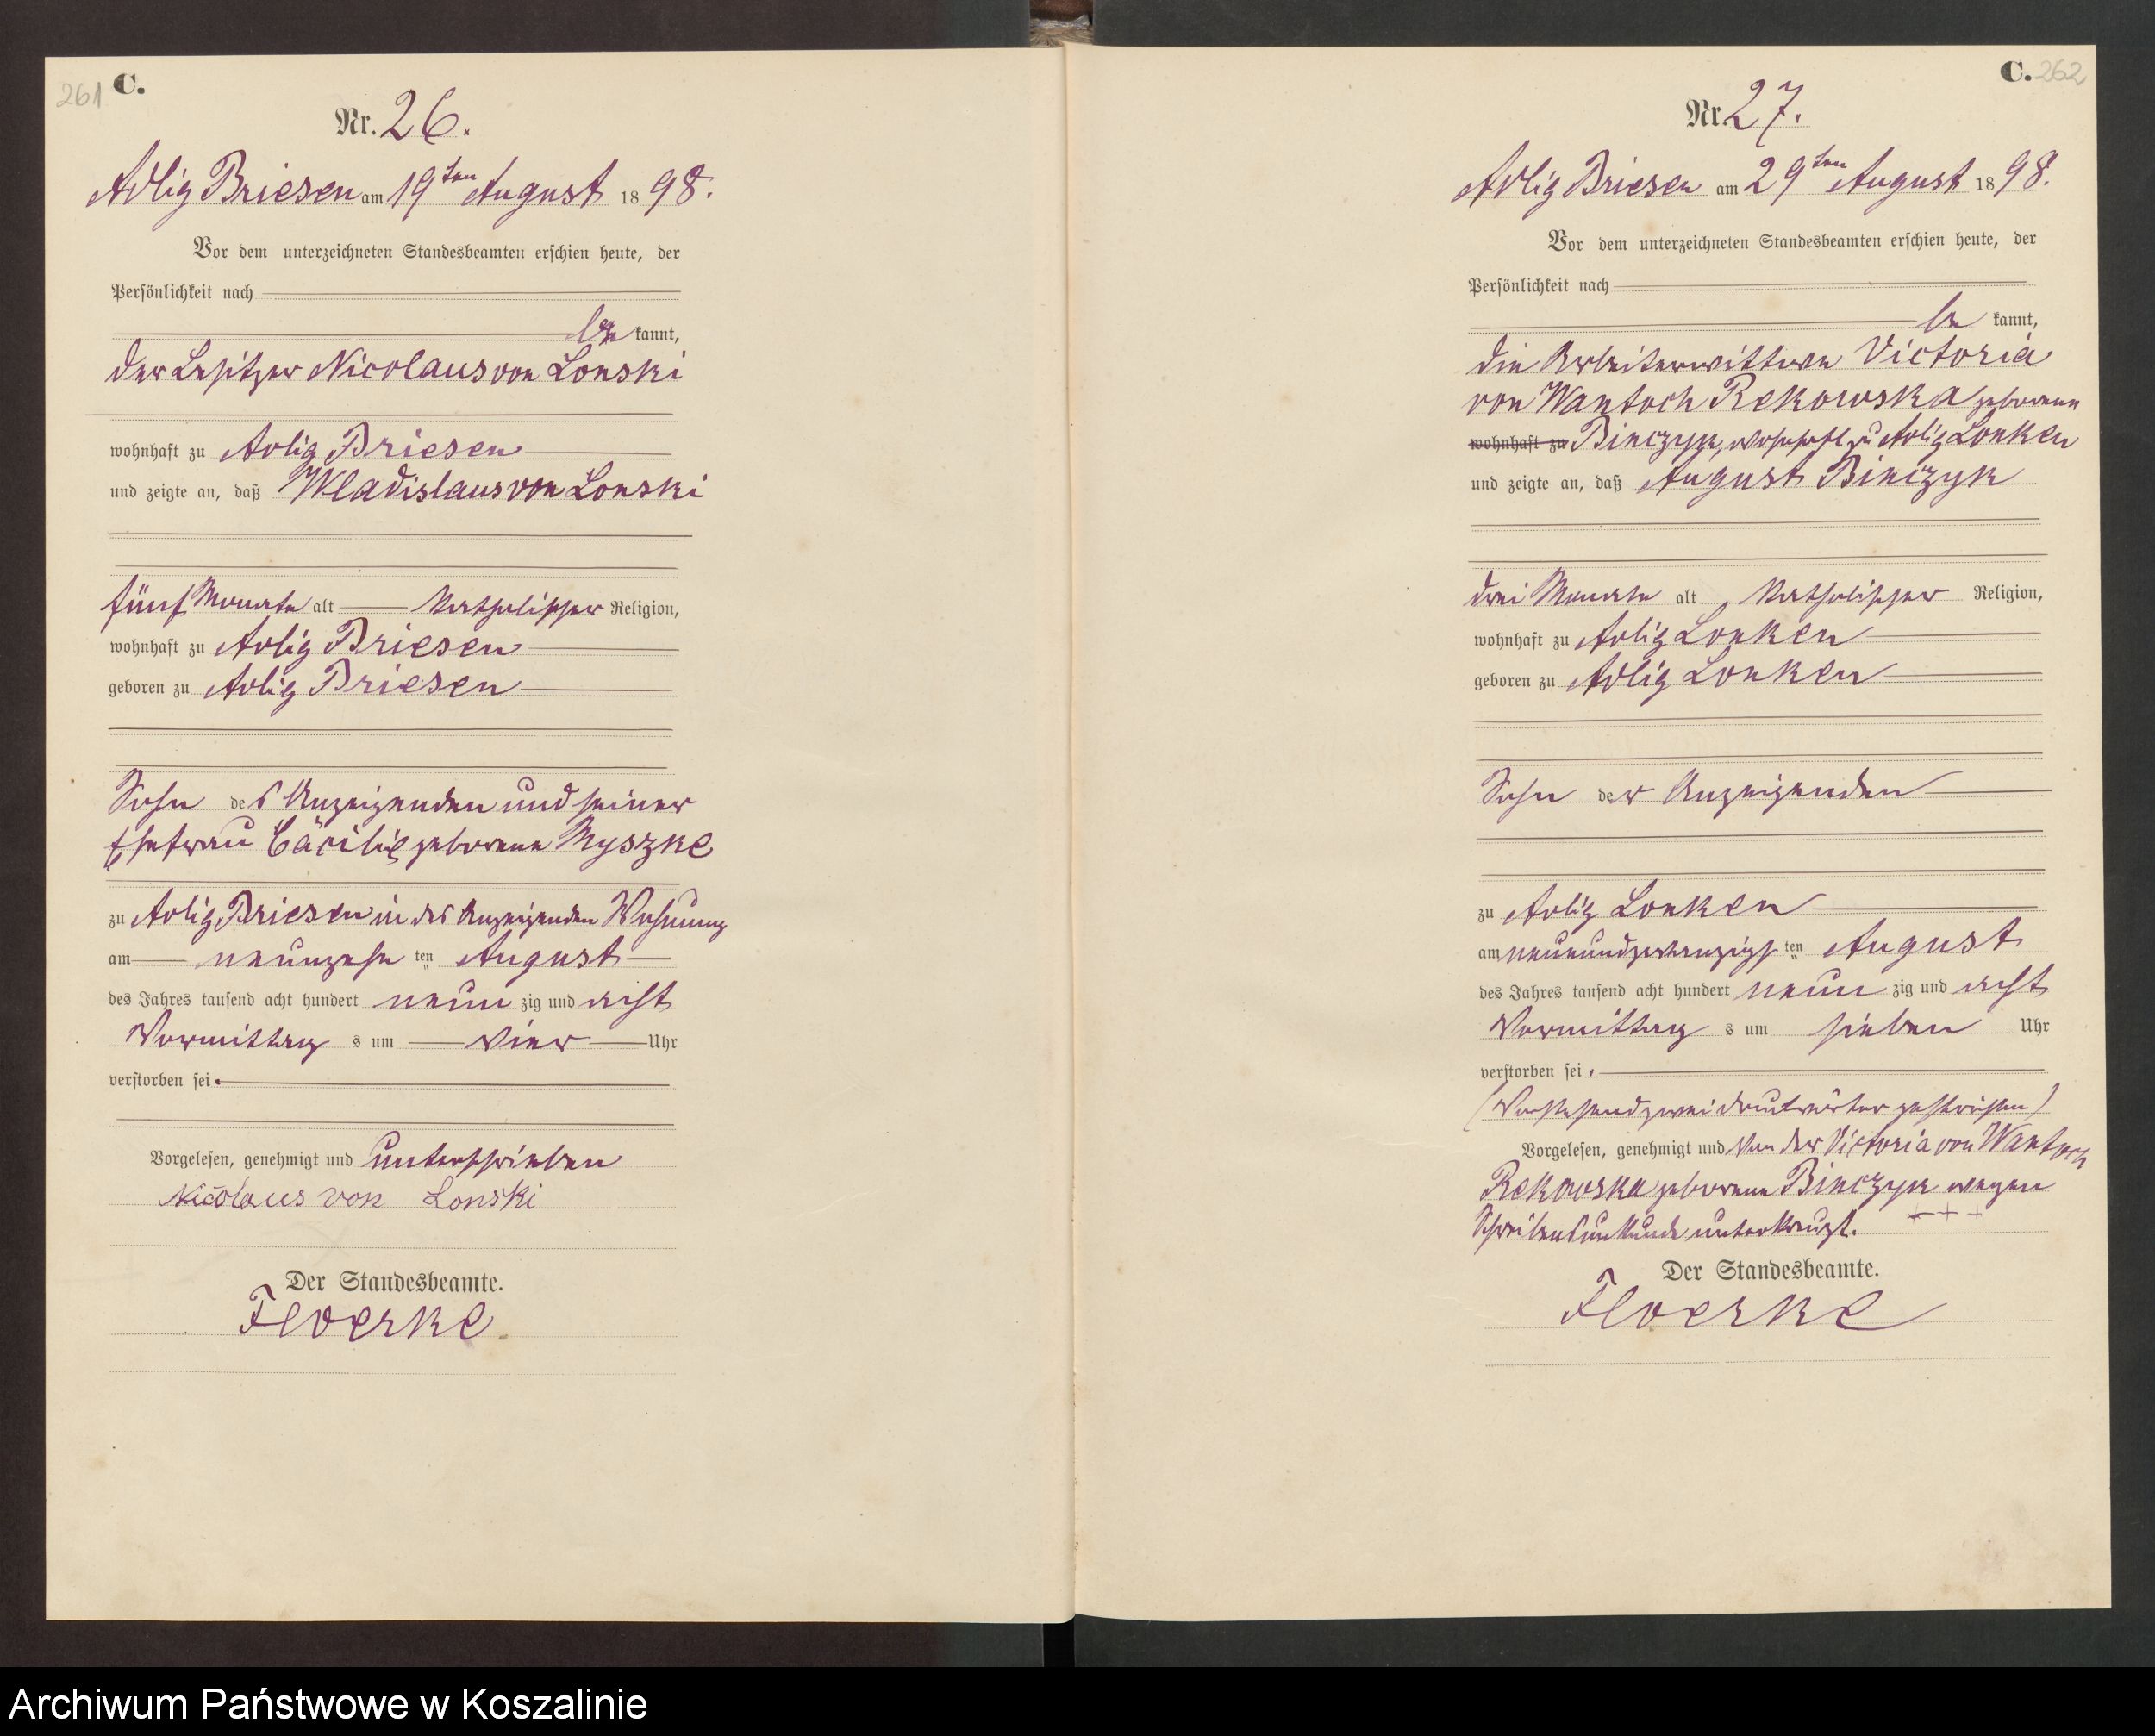 261 C.
Nr. 26.
Adlig Briesen am 19ten August 1898.
Vor dem unterzeichneten Standesbeamten erschien heute, der
Persönlichkeit nach
be kannt,
der Besitzer Nicolaus von Lonski
wohnhaft zu Adlig Briesen
und zeigte an, daß Wladislaus von Lonski
fünf Monate alt katholischer Religion,
wohnhaft zu Adlig Briesen
geboren zu Adlig Briesen
Sohn des Anzeigenden und seiner
Ehefrau Cäcilie geborene Myszke
zu Adlig Briesen in des Anzeigenden Wohnung
am neunzehn ten August
des Jahres tausend acht hundert neun zig und acht
Vormittag s um vier Uhr
verstorben sei.
Vorgelesen, genehmigt und unterschrieben
Nicolaus von Lonski
Der Standesbeamte.
Floerke
C. 262
Nr. 27.
Adlig Briesen am 29ten August 1898.
Vor dem unterzeichneten Standesbeamten erschien heute, der
Persönlichkeit nach
be kannt,
die Arbeiterwittwe Victoria
von Wantoch Rekowska geborene
wohnhaft zu Binczyk, wohnhaft zu Adlig Lonken
und zeigte an, daß August Binczyk
drei Monate alt, katholischer Religion,
wohnhaft zu Adlig Lonken
geboren zu Adlig Lonken
Sohn der Anzeigenden
zu Adlig Lonken
am neunundzwanzigs ten August
des Jahres tausend acht hundert neun zig und acht
Vormittag s um sieben Uhr
verstorben sei.
(Vorstehend zwei Druckwörter gestrichen)
Vorgelesen, genehmigt und von der Victoria von Wantoch
Rekowska geborene Binczyk wegen
Schreibensunkunde unterkreuzt. + + +
Der Standesbeamte.
Floerke
Archiwum Państwowe w Koszalinie